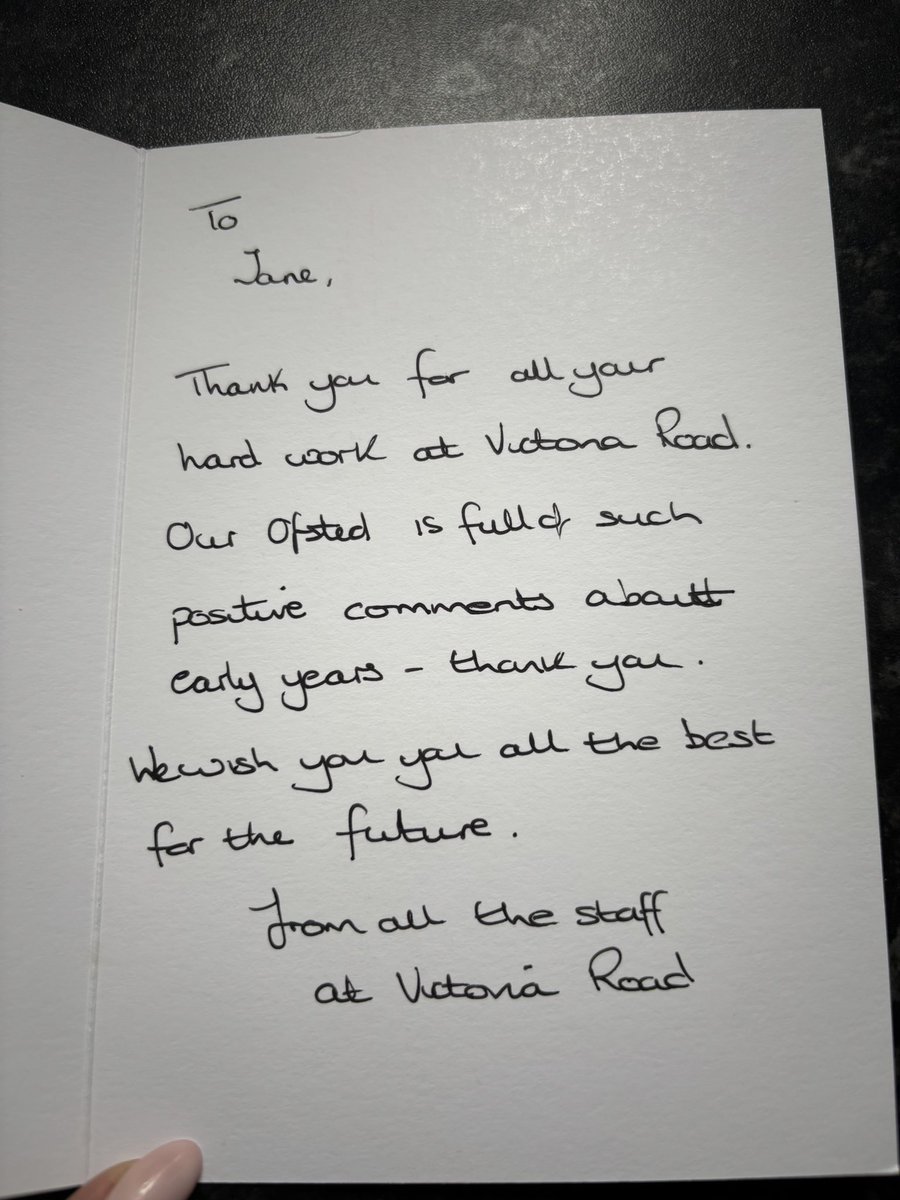 To
Jane,
Thank you for all your
hard work at Victoria Road.
Our Ofsted is full of such
positive comments about
early years - thank you.
We wish you you all the best
for the future.
From all the staff
at Victoria Road